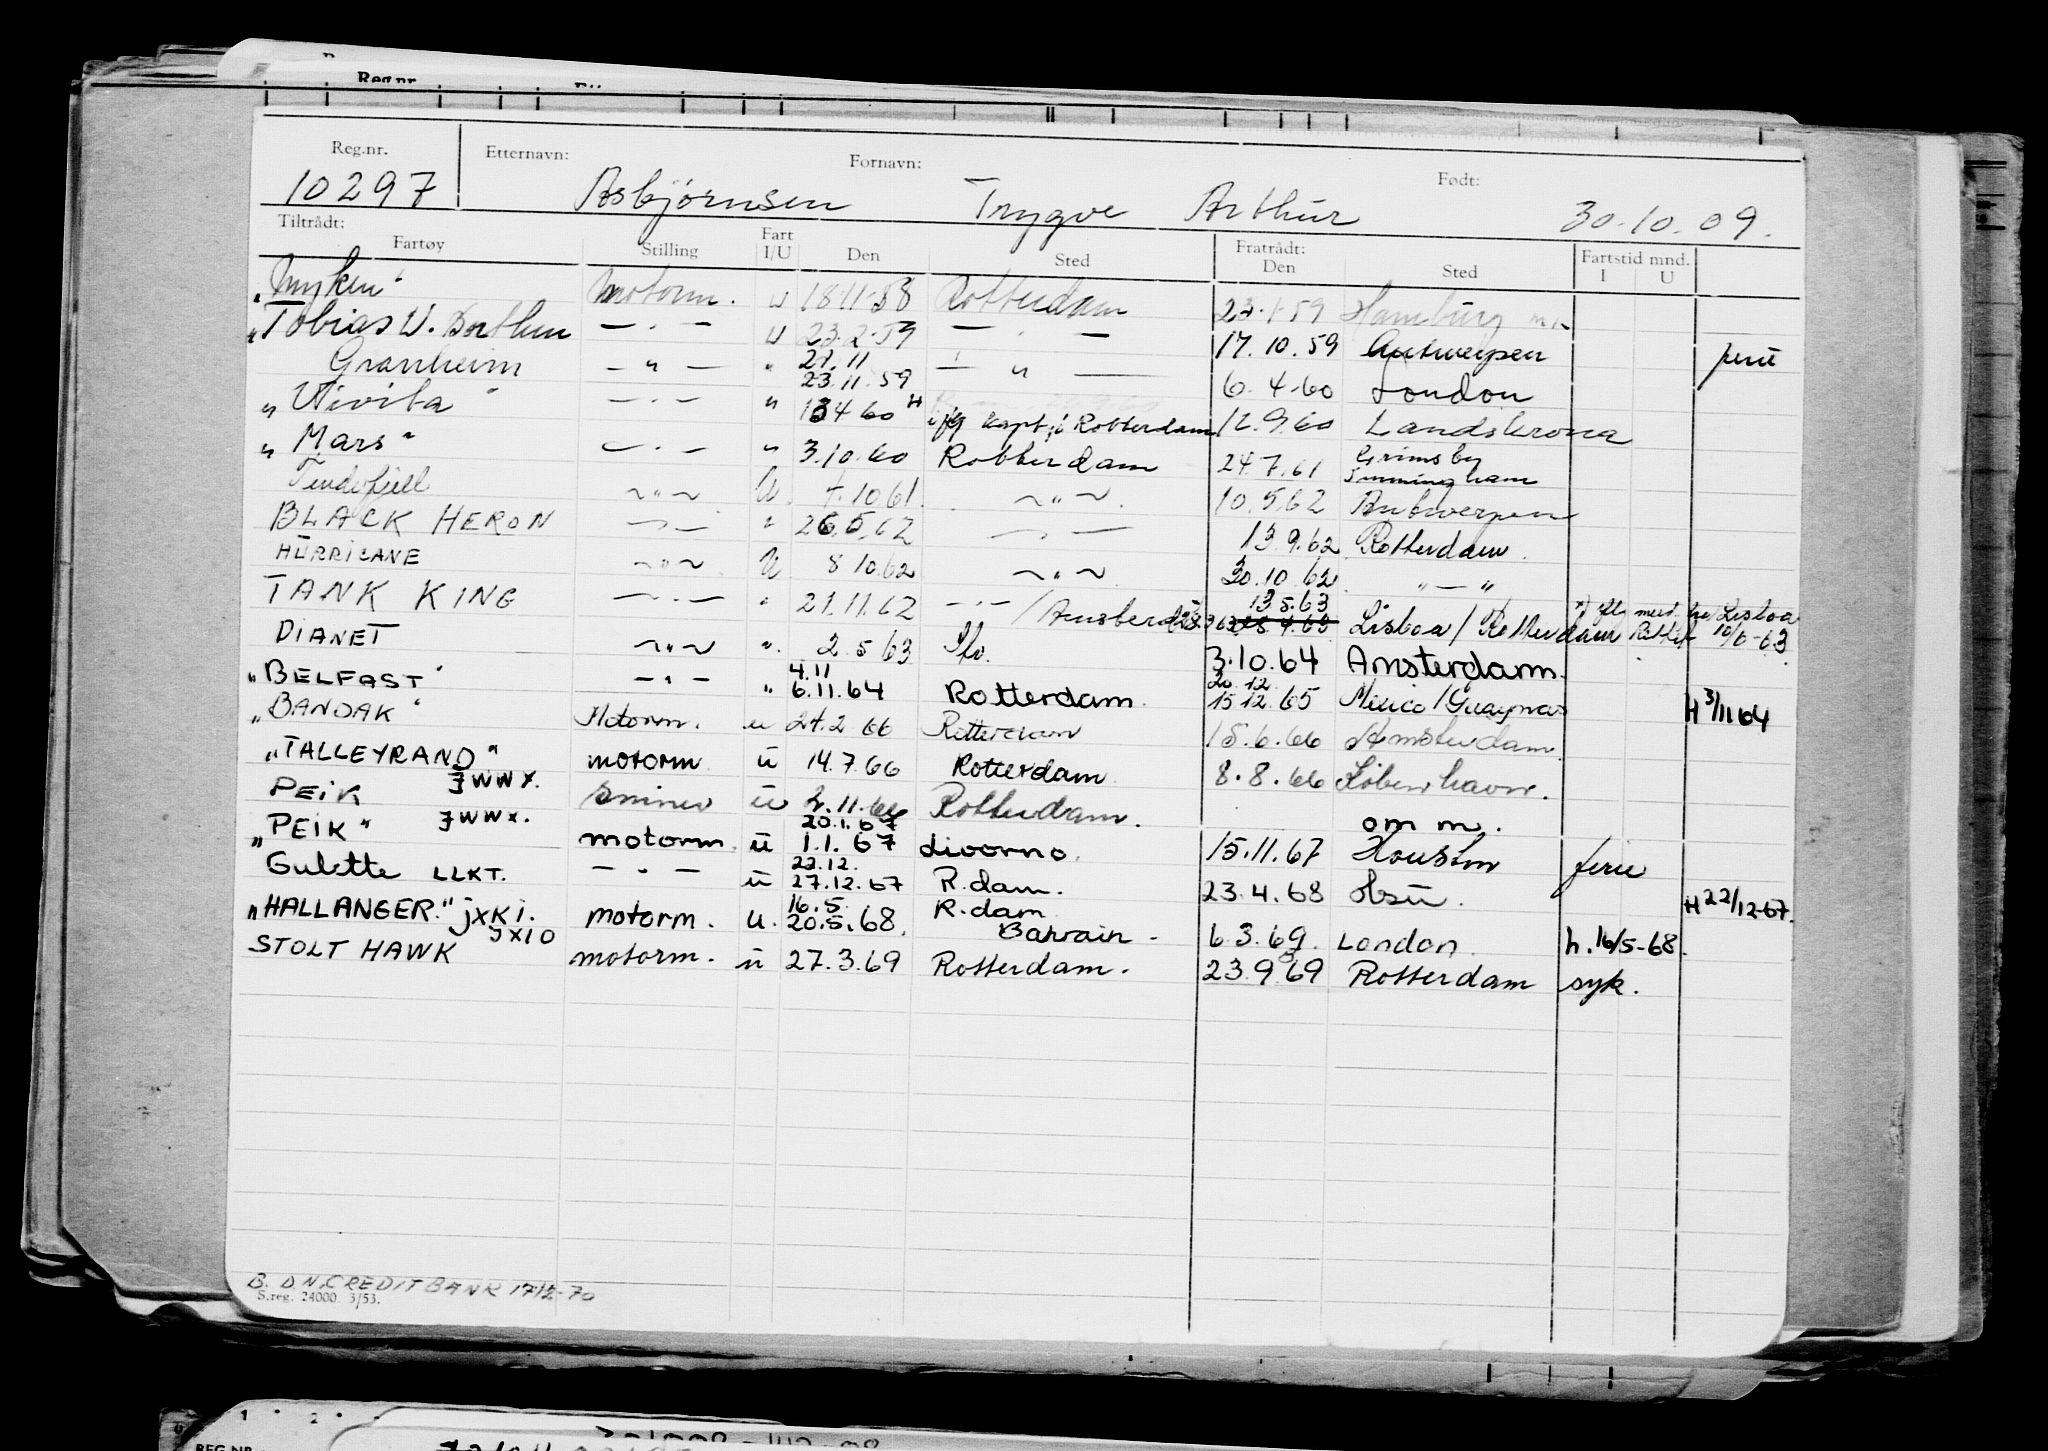 Reg.nr.
Reg.nr. Etternavn: Fornavn: Født:
10297 Asbjørnsen Trygve Arthur 30.10.09.
Tiltrådt: Fratrådt:
Fartøy Stilling Fart I/U Den Sted Den Sted Fartstid mnd. I U
"Myken" Motorm. u 18.11.58 Rotterdam 23.1.59 Hamburg
"Tobias U. Borthen —.— u 23.2.59 — . — 17.10.59 Antwerpen ferie
27.11
Granheim — " — " 23.11.59 — " — 6.4.60 London
" Vivita " —.— " 13 4 60 H kapt. i Rotterdam 12.9.60 Landskrona
" Mars " —.— " 3.10.60 Rotterdam 24.7.61 Grimsby
Immingham
Tindefjell ~"~ U. 7.10.61 ~"~. 10.5.62 Antwerpen
BLACK HERON —,— " 26.5.62 —,— 13.9.62 Rotterdam.
HURRICANE ~"~ U 8 10.62 ~"~. 30.10.62 "—"
13.5.63
TANK KING —.— " 21.11.62 —.—/Amsterdam Lisboa / Rotterdam Lisboa
10/5-63
DIANET ~"~ ". 2.5 63 3.10.64 Amsterdam.
4.11 20.12
"BELFAST" —.— " 6.11.64 Rotterdam. 15.12.65 Mexico/Guaymas H 3/11 64
"BANDAK" Motorm. u 24.2 66 Rotterdam 15.6.66 Amsterdam
"TALLEYRAND" motorm. u 14.7.66 Rotterdam 8.8.66 København.
PEIK JWWX. u 2.11.66 Rotterdam. om m.
20.1.67
"PEIK" JWWX. motorm. u 1.1.67 Livorno. 15.11.67 Houston ferie
22.12.
Gulette LLKT. —.— u 27.12.67 R.dam. 23.4.68 H 22/12-67.
16.5. R.dam
"HALLANGER." JXKI. motorm. u. 20.5.68. Bahrain. 6.3.69. London. h. 16/5-68.
JXIO
STOLT HAWK motorm. u 27.3.69 Rotterdam. 23.9.69 Rotterdam syk.
B. D.N.CREDITBANK 17/2-70
S.reg. 24000. 3/53.
REG.NR.